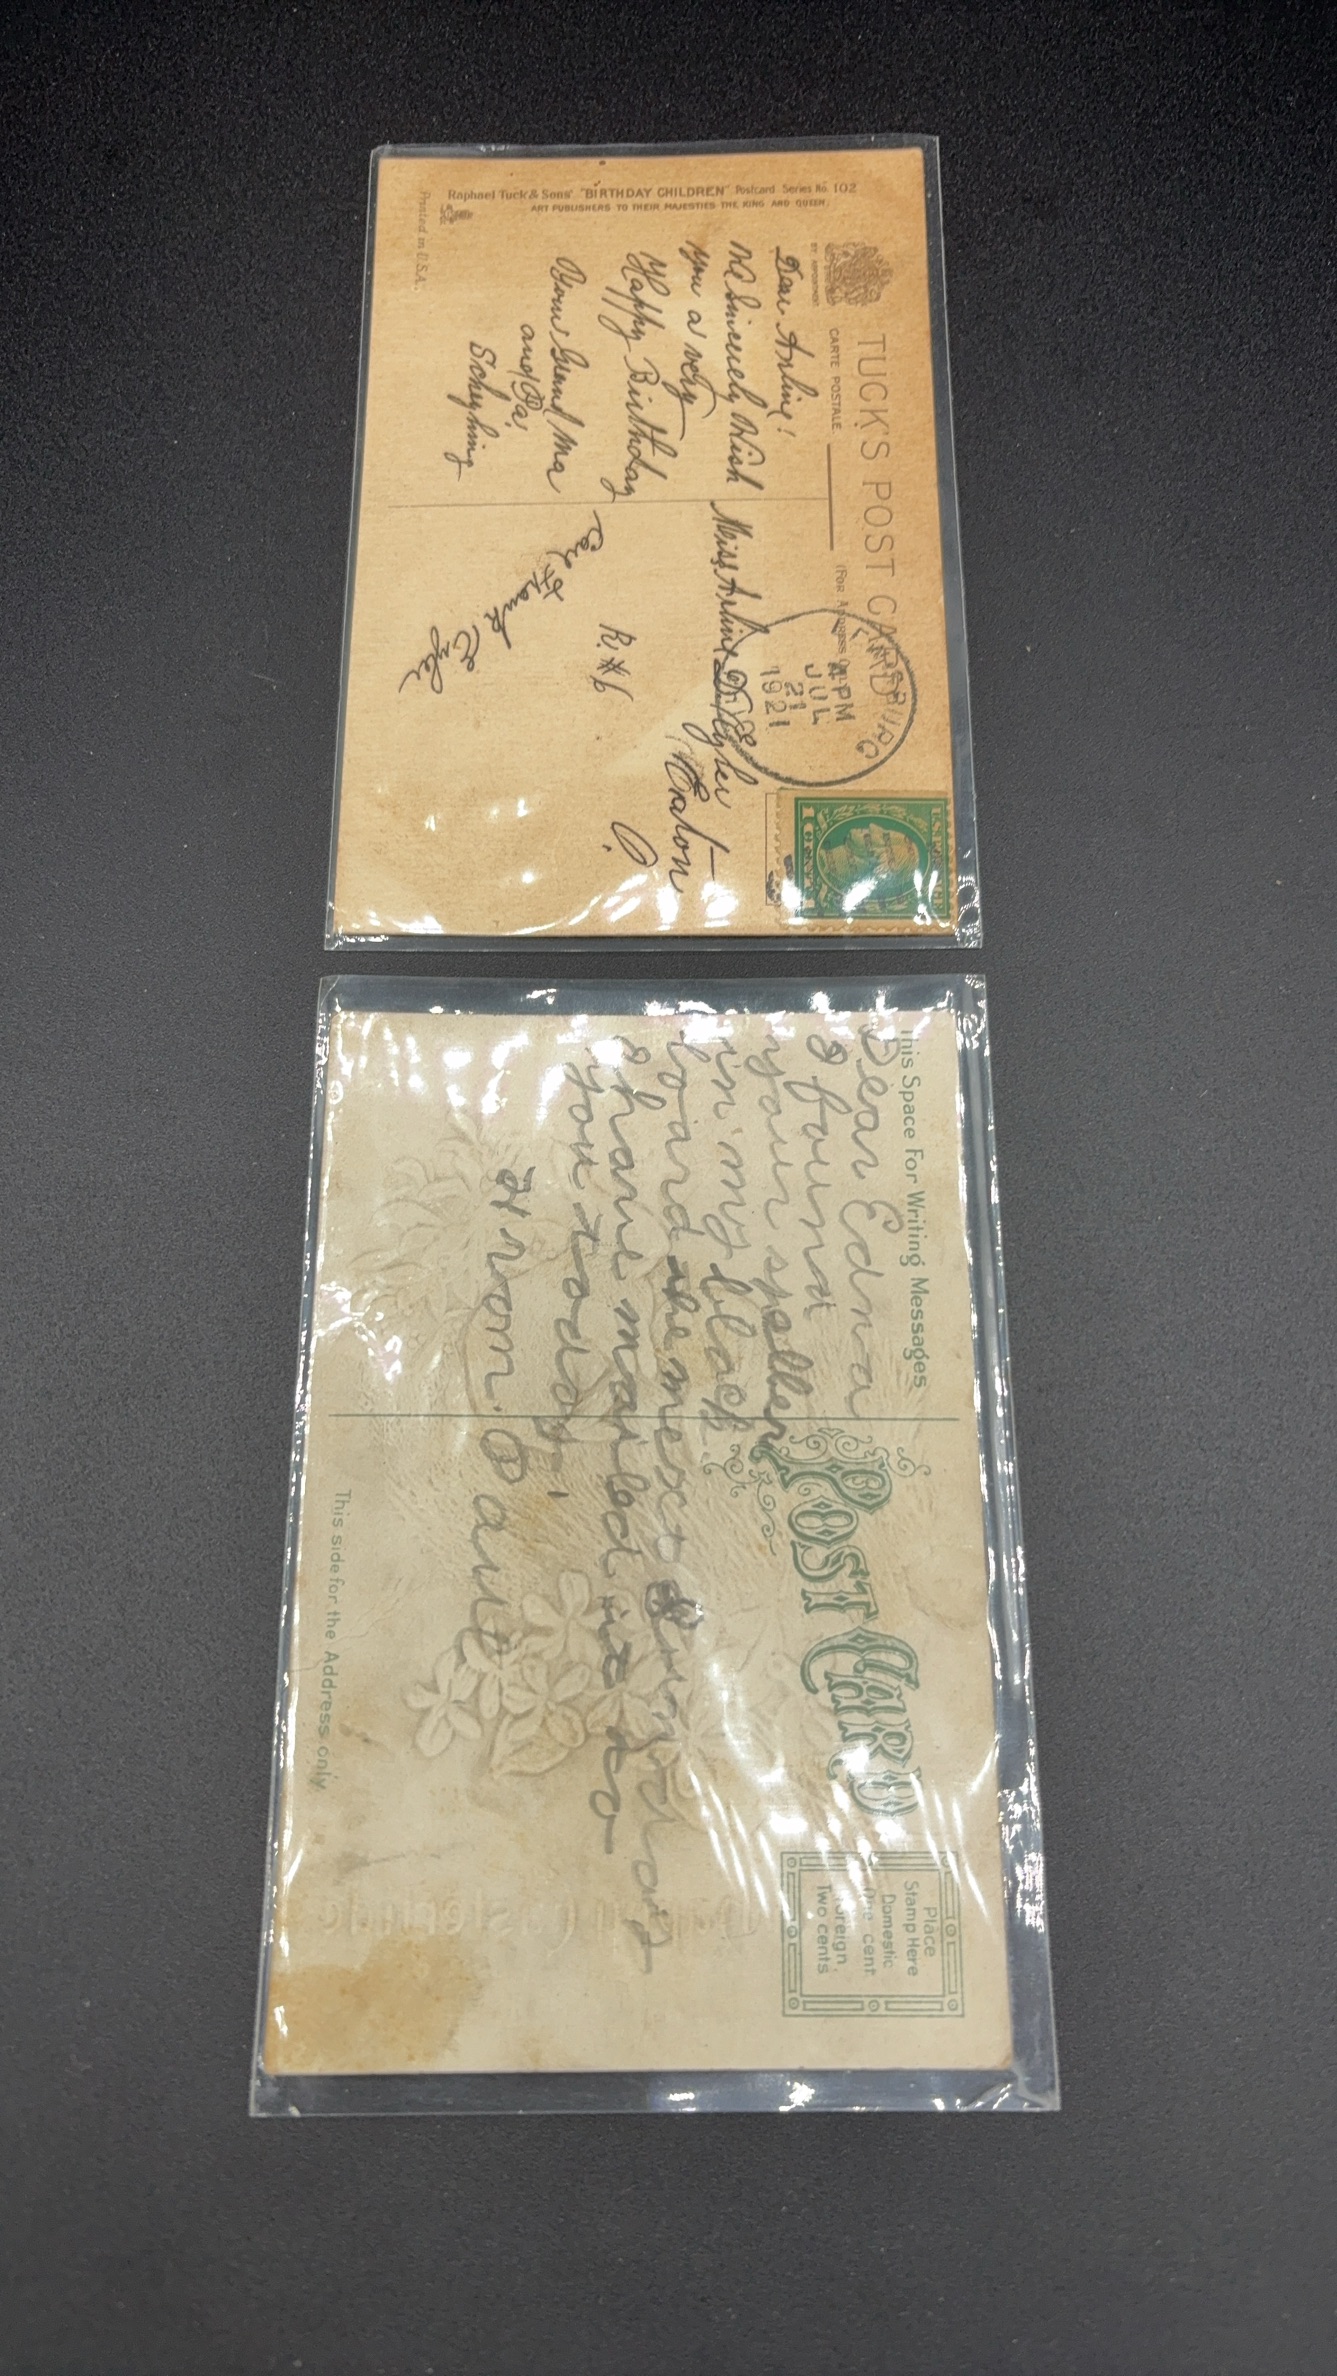 Raphael Tuck & Sons' "BIRTHDAY CHILDREN" Postcard Series No. 102
ART PUBLISHERS TO THEIR MAJESTIES THE KING AND QUEEN.
Printed in U.S.A.
BY APPOINTMENT
TUCK'S POST CARD
CARTE POSTALE.
(FOR ADDRESS
4 PM
JUL
21
1921
U.S. POSTAGE
1 CENT 1
Dear Arline!
We Sincerely Wish
you a very
Happy Birthday
Your Grand Ma
and Pa
Miss Arline D.
Eaton
O.
R. #6
This Space For Writing Messages
POST CARD
Place
Stamp Here
Domestic
One cent
Foreign
Two cents
Dear Edna
I found
your speller
in my black
board the next Sunday
I have mailed it to
you today.
From Paul
This side for the Address only